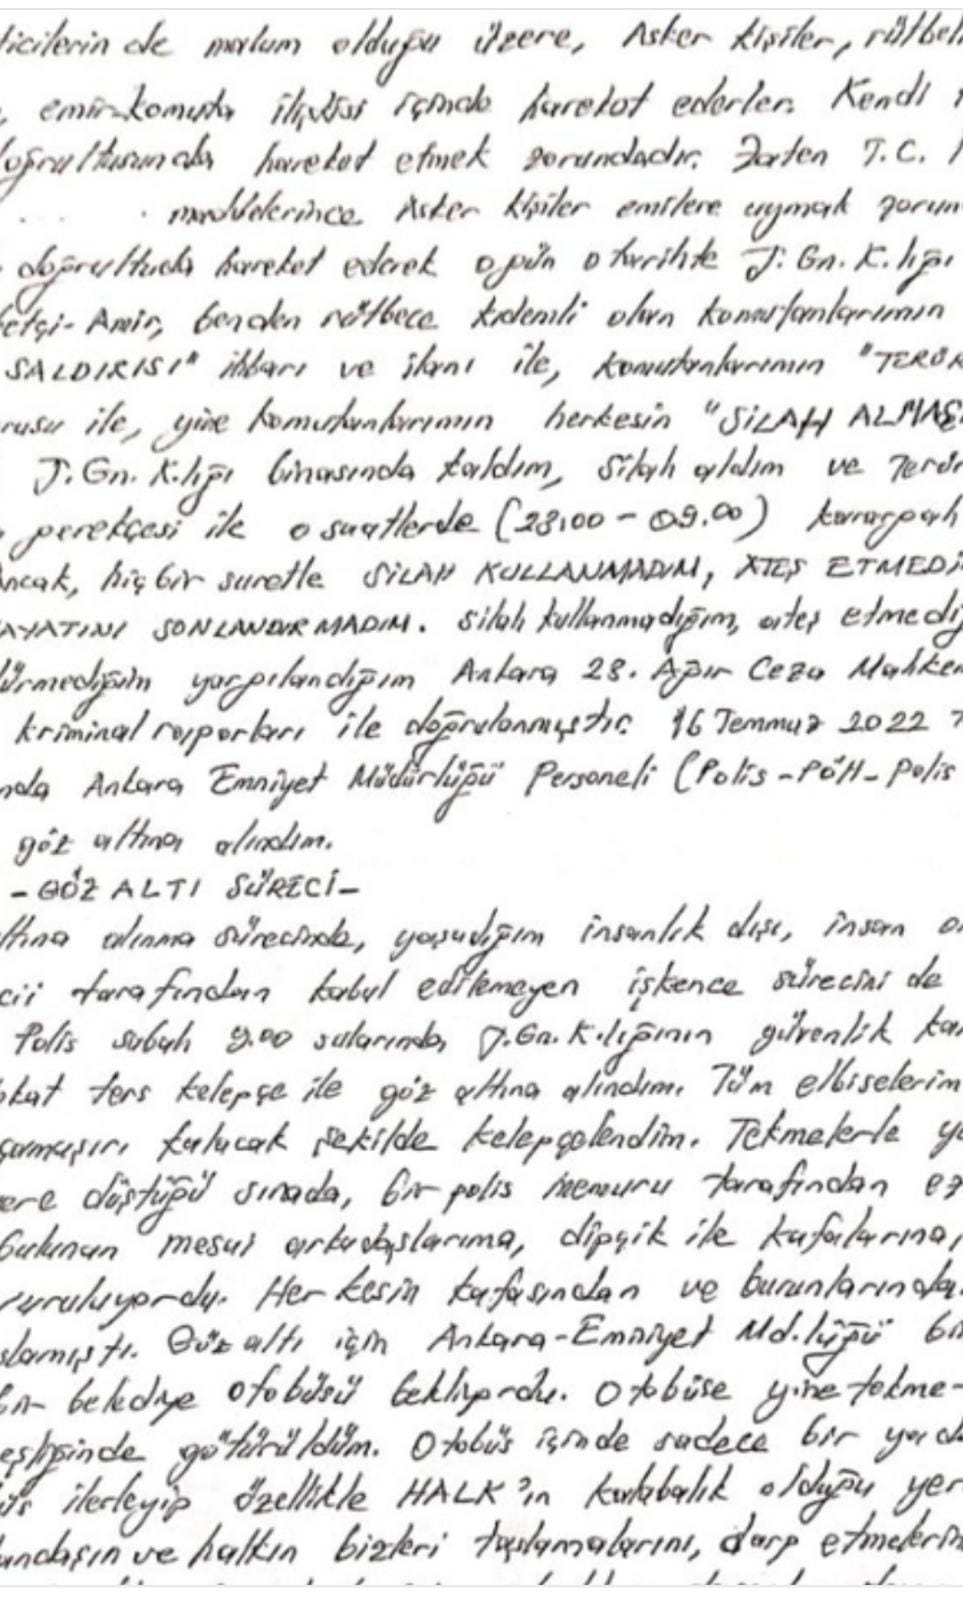 ticilerin de malum olduğu üzere, Asker kişiler, rütbel
, emir-komuta ilişkisi içinde hareket ederler. Kendi
oğrultusunda hareket etmek zorundadır. Zaten T.C.
. . . . maddelerince Asker kişiler emirlere uymak zorun
doğrultuda hareket ederek o gün o tarihte J. Gn. K.lığı
betçi-Amir, benden rütbece kıdemli olan komutanlarımın
SALDIRISI" ihbarı ve ilanı ile, komutanlarımın "TERÖR
rusu ile, yine komutanlarımın herkesin "SİLAH ALMAS
J.Gn.K.lığı binasında kaldım, silah aldım ve Terör
gerekçesi ile o saatlerde (23:00 - 09.00) karargah
Ancak, hiç bir suretle SİLAH KULLANMADIM, ATEŞ ETMEDİ
AYATINI SONLANDIRMADIM. silah kullanmadığım, ateş etmediğ
dürmediğim yargılandığım Ankara 23. Ağır Ceza Mahkem
kriminal raporları ile doğrulanmıştır. 16 Temmuz 2022
nda Ankara Emniyet Müdürlüğü Personeli (Polis-PÖH-Polis
göz altına alındım.
- GÖZ ALTI SÜRECİ -
ltına alınma sürecinde, yaşadığım insanlık dışı, insan on
cii tarafından kabul edilemeyen işkence sürecini de
Polis sabah 9.00 sularında J.Gn.K.lığının güvenlik
okat ters kelepçe ile göz altına alındım. Tüm elbiselerim
çamaşırı kalacak şekilde kelepçelendim. Tekmelerle
ere düştüğü sırada, bir polis memuru tarafından ez
bulunan mesai arkadaşlarıma, dipçik ile kafalarına,
ruruluyordu. Herkesin kafasından ve burunlarında
slamıştı. Göz altı için Ankara-Emniyet Md.lüğü
bir belediye otobüsü bekliyordu. Otobüse yine tekme-
eşliğinde götürüldüm. Otobüs içinde sadece bir
üs ilerleyip özellikle HALK'ın kalabalık olduğu yer
andaşın ve halkın bizleri taşlamalarını, darp etmelerin